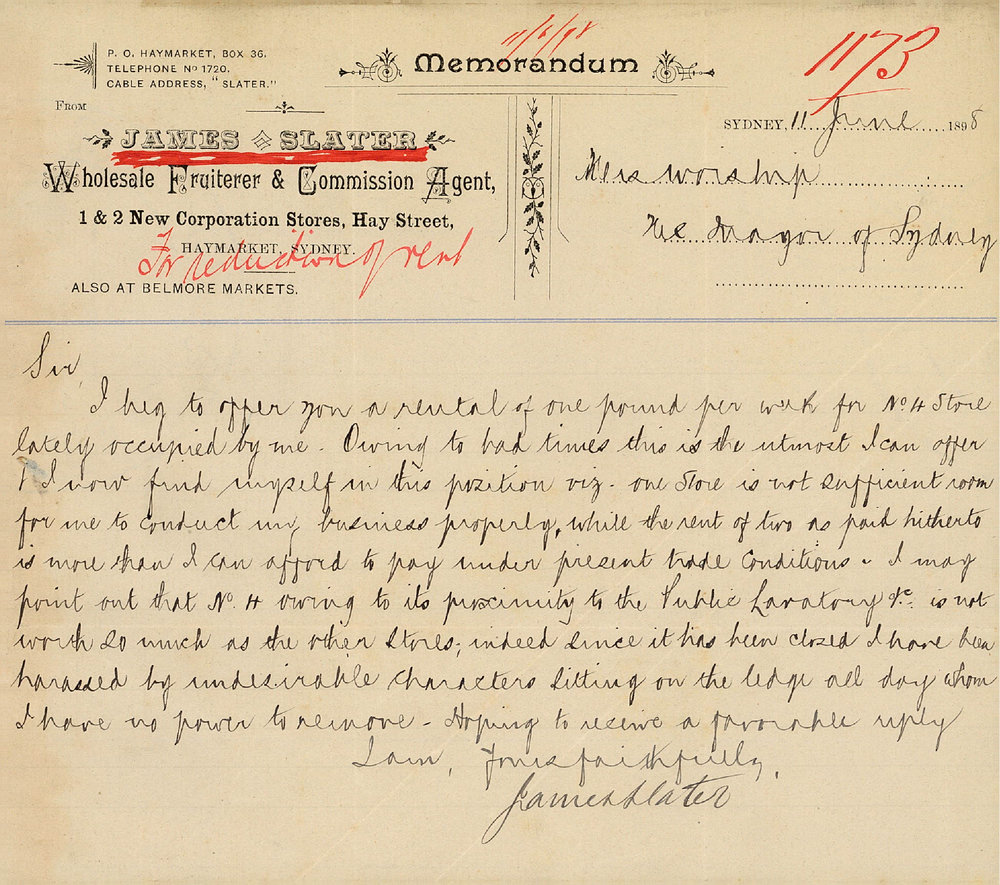 P. O. HAYMARKET, BOX 36.
TELEPHONE No 1720.
CABLE ADDRESS, "SLATER."
11/6/98
Memorandum
1173
FROM
JAMES SLATER
Wholesale Fruiterer & Commission Agent,
1 & 2 New Corporation Stores, Hay Street,
HAYMARKET, SYDNEY.
For reduction of rent
ALSO AT BELMORE MARKETS.
SYDNEY, 11 June 1898
His worship
The Mayor of Sydney
Sir,
I beg to offer you a rental of one pound per week for No. 4 Store
lately occupied by me. Owing to bad times this is the utmost I can offer
& I now find myself in this position viz. one Store is not sufficient room
for me to conduct my business properly, while the rent of two as paid hitherto
is more than I can afford to pay under present trade conditions. I may
point out that No. 4 owing to its proximity to the Public Lavatory &c. is not
worth so much as the other Stores; indeed since it has been closed I have been
harassed by undesirable characters sitting on the ledge all day whom
I have no power to remove - Hoping to receive a favorable reply
I am, Yours faithfully,
James Slater